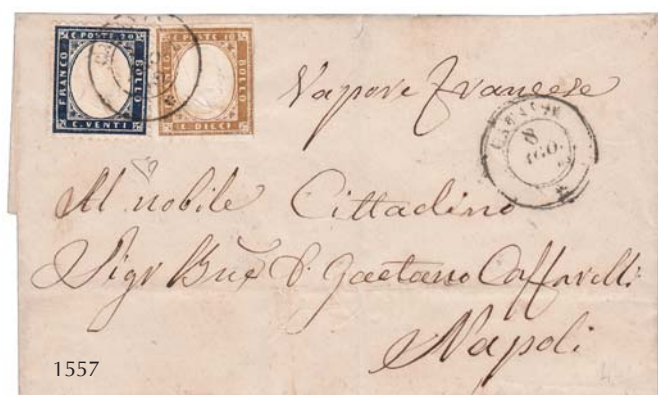 C. POSTE 20
FRANCO
BOLLO
C. VENTI
C. POSTE 10
BOLLO
C. DIECI
Vapore francese
8
AGO.
Al nobile Cittadino
Sigr D. Gaetano Caffarelli
Napoli
1557